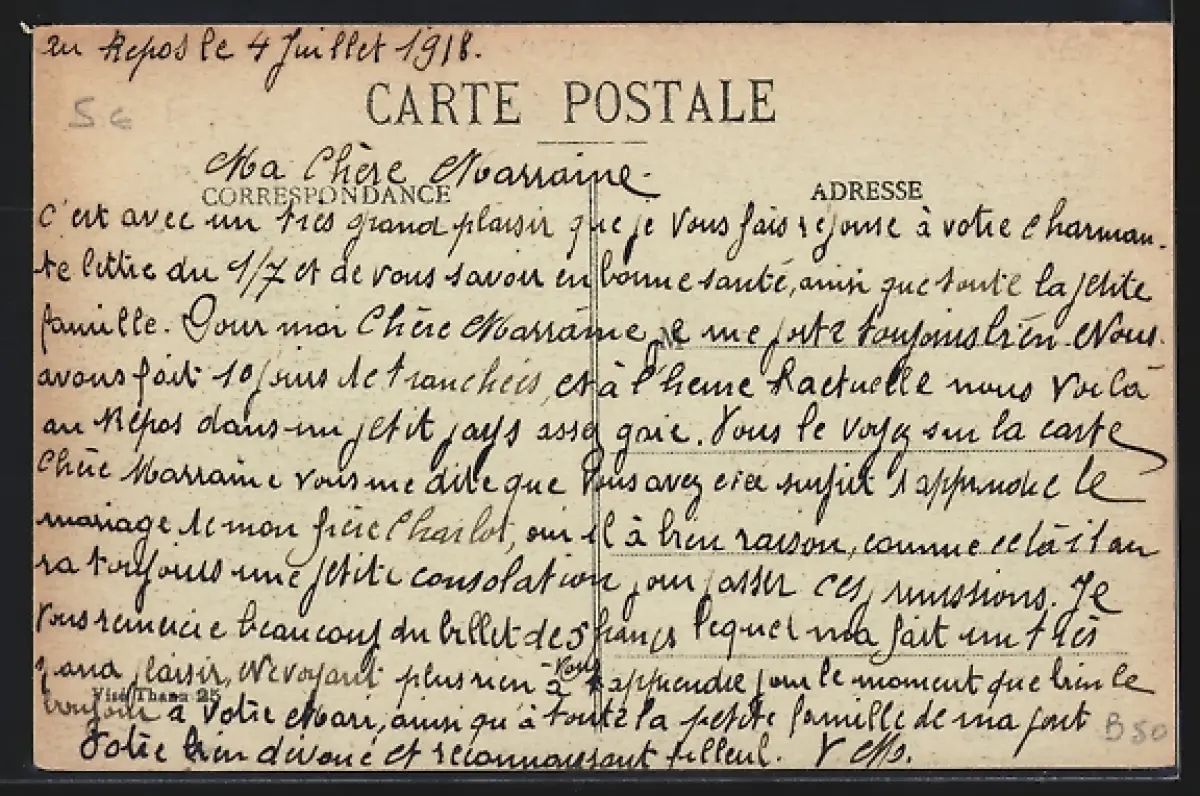 en Repos le 4 Juillet 1918.
5 €
CARTE POSTALE
Ma Chère Marraine.
CORRESPONDANCE
ADRESSE
C'est avec un très grand plaisir que je vous fais réponse à votre Charman-
te lettre du 1/7 et de vous savoir en bonne santé, ainsi que toute la petite
famille. Pour moi Chère Marraine, je me porte toujours bien. Nous
avons fait 10 jours de tranchées, et à l'heure actuelle nous voilà
au Répos dans un petit pays assez gaie. Vous le voyez sur la carte
Chère Marraine vous me dite que Vous avez été surpris d'apprendre le
mariage de mon frère Charlot, oui il à bien raison, comme celà il au
ra toujours une petite consolation pour passer ces permissions. Je
Vous remercie beaucoup du billet de 5 francs lequel ma fait un très
grand plaisir, Ne voyant plus rien à vous apprendre pour le moment que bien le
Visé Thann 25
bonjour à Votre Mari, ainsi qu'à toute la petite famille de ma part
Votre bien dévoué et reconnaissant filleul. V M.
B50